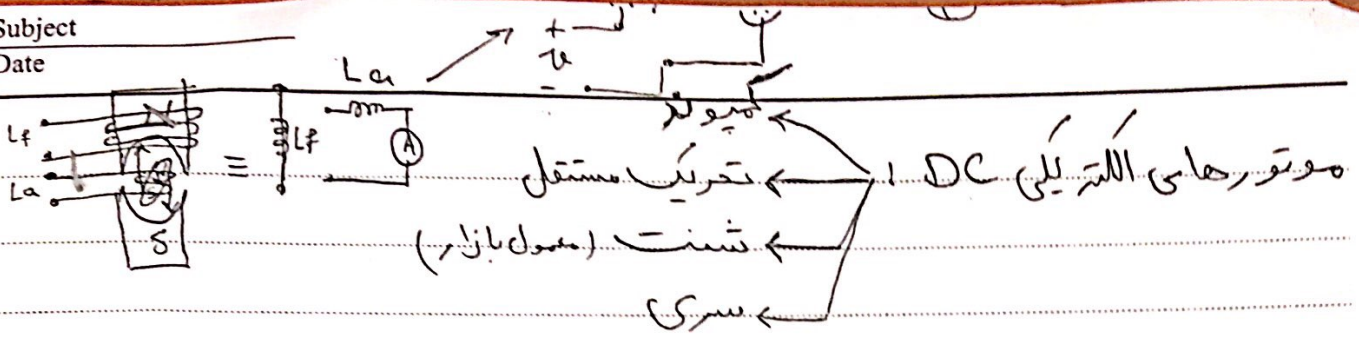 Subject
Date
+
v
-
La
Lf
La
N
S
≡
Lf
A
موتورهای الکتریکی DC :
کمپوند
تحریک مستقل
شنت (معمول بازار)
سری